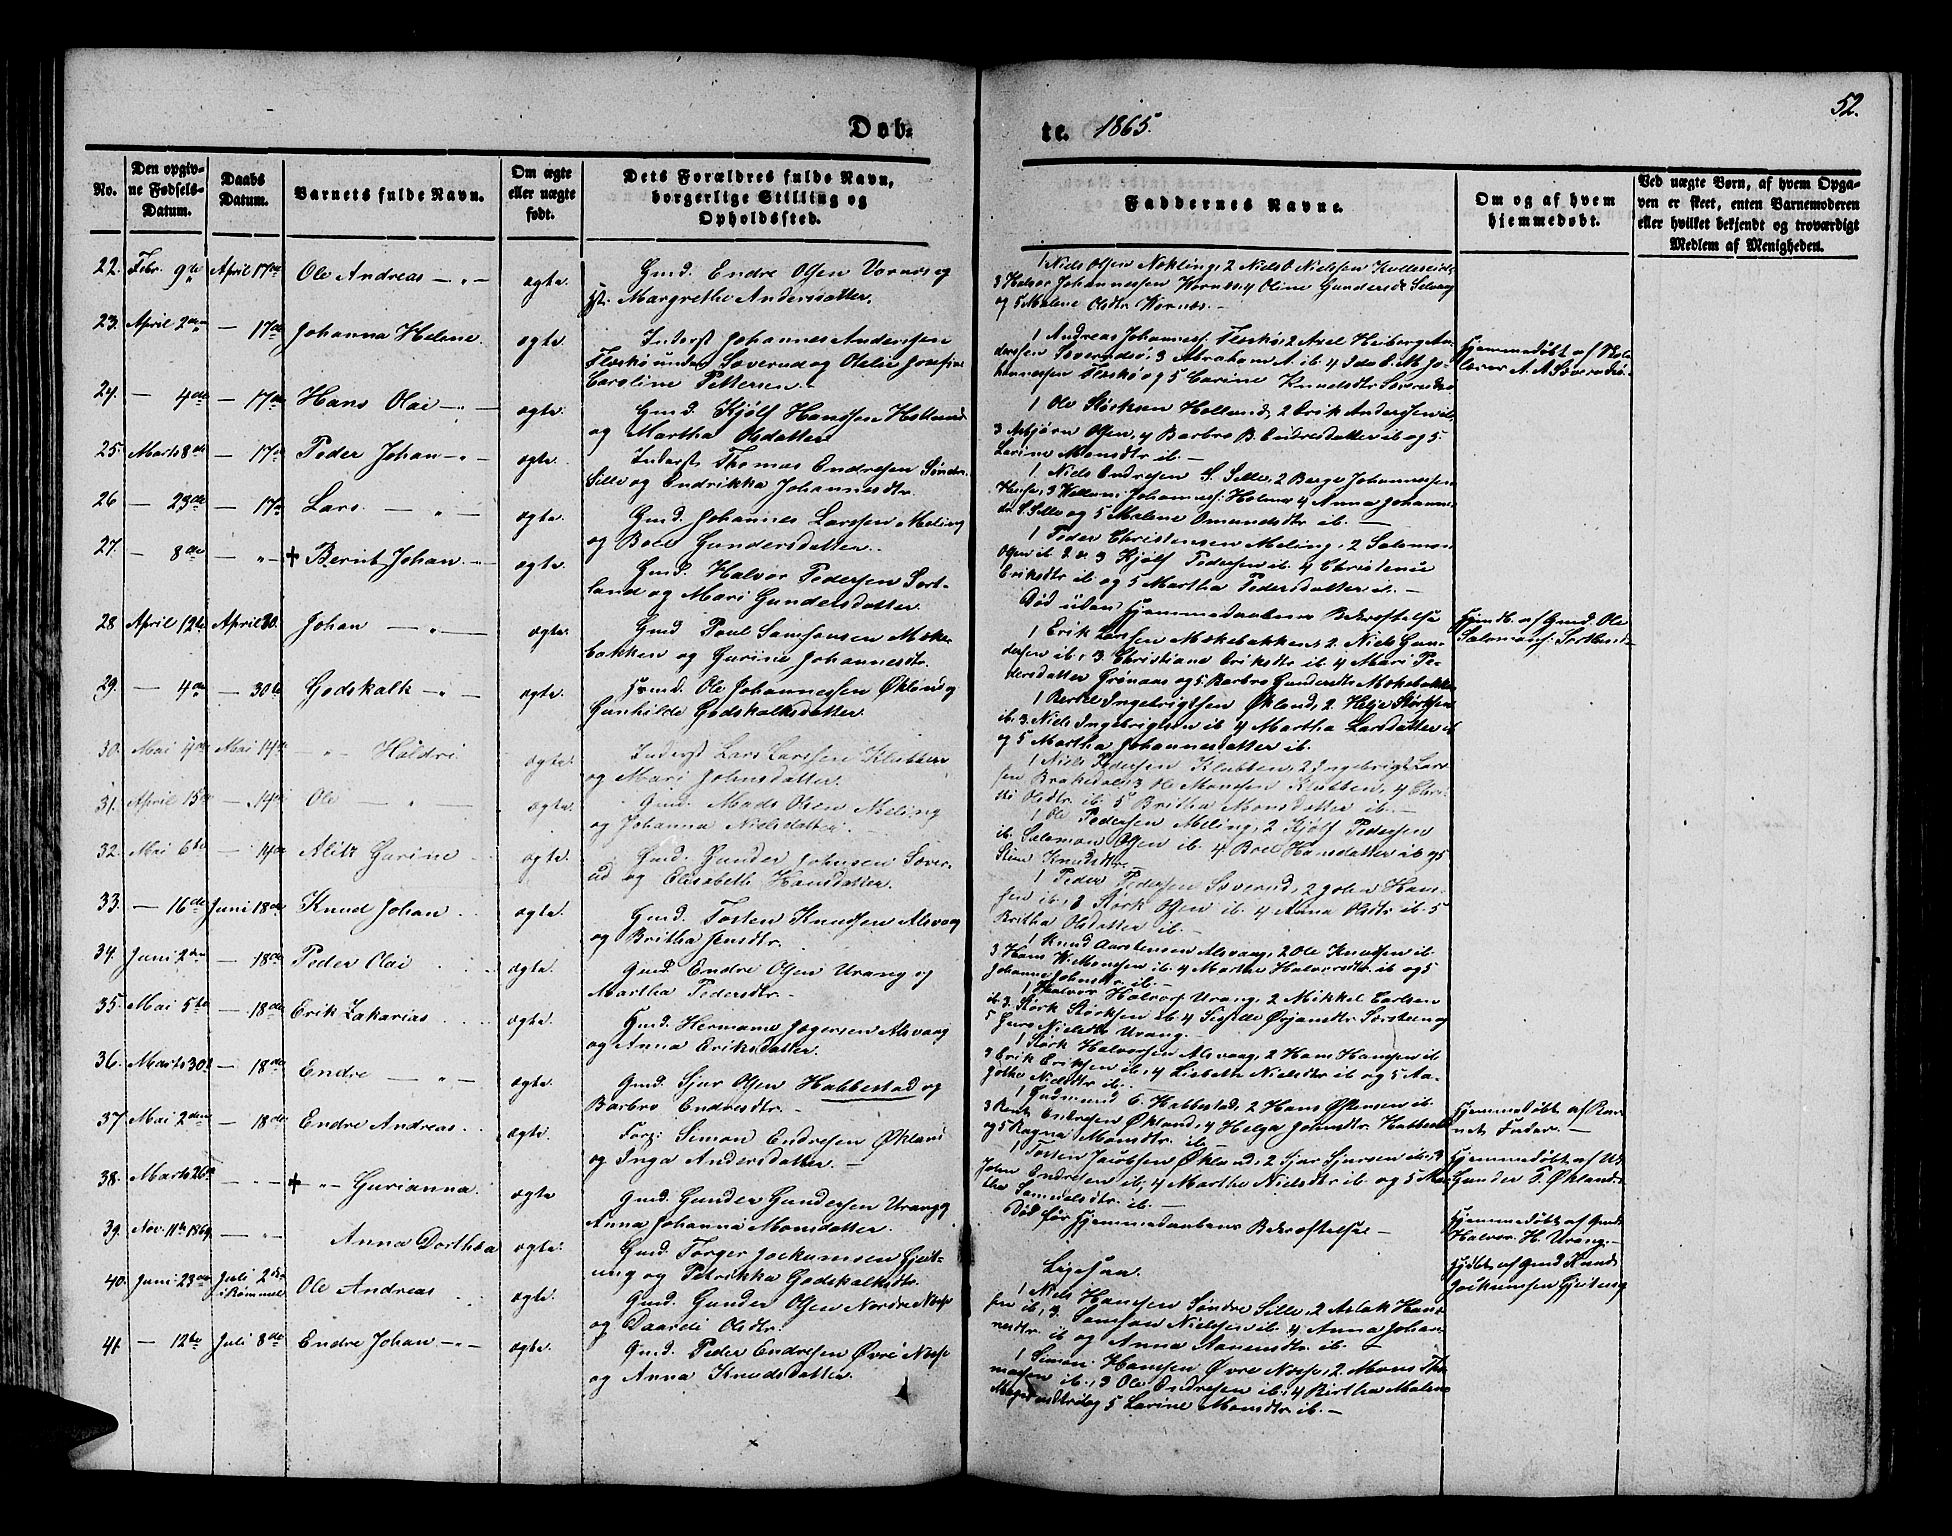 52.
Døb-
te. 1865.
No.
Den opgiv-
ne Fødsels-
Datum.
Daabs
Datum.
Barnets fulde Navn.
Om ægte
eller uægte
født.
Dets Forældres fulde Navn,
borgerlige Stilling og
Opholdssted.
Faddernes Navne.
Om og af hvem
hjemmedøbt.
Ved uægte Børn, af hvem Opga-
ven er skeet, enten Barnemoderen
eller hvilket bekjendt og troværdigt
Medlem af Menigheden.
22. Febr. 9de April 17de Ole Andreas — " — ægte. Gmd. Endre Olsen Vornes og
Margrethe Andersdatter.
1 Niels Olsen Nøkling, 2 Niels O Nielsen
3 Halvor Johannessen Vornes, 4 Oline Gundersdt.
og 5 Malene Olsdtr. Vornes. —
23. April 2den — 17de Johanna Helene. ægte. Inderst Johannes Andersen
Flæskø under Søverud og Otelie Josefine
Caroline Pettersen.
1 Andreas Johanness. Flæskø, 2 Axel Heiberg An-
dersen Søverudø, 3 Abraham A ib. 4 Ida E. M. Jo-
hannessen Flæskø og 5 Carine Knudsdtr Søverudø
Hjemmedøbt af Sko-
lelærer A. A. Søverudø.
24. — 4de — 17de Hans Olai — " — ægte. Gmd. Kjølf Hanssen Hollund
og Martha Olsdatter
1 Ole Størksen Hollund, 2 Erik Anderssen ib.
3 Asbjørn Olsen, 4 Barbro B. Endresdatter ib og 5.
Larine Monsdtr ib. —
25. Marts 8de — 17de Peder Johan — " — ægte. Inderst Thomas Endresen Søndre
Sille og Endrikka Johannesdtr.
1 Niels Endresen S. Sille, 2 Berge Johannessen
4 Anna Johannes-
S. Sille og 5 Malene Omundsdtr ib. —
26 — 23de — 17de Lars — " — ægte. Gmd. Johannes Larssen Meling
og Boel Gundersdatter.
1 Peder Christensen Meling, 2 Salomon
Olsen ib 3 Kjølf Pedersen ib. 4 Christense
Eriksdtr ib og 5 Martha Pedersdatter ib. —
27. — 8de — " — † Bernt Johan. — ægte. Gmd. Halvor Pedersen Sort-
land og Mari Gundersdatter.
Død uden Hjemmedaabens Bekræftelse
Hjemdb. af Gmd. Ole
Salomons. Sortland —
28 April 12te April 30. Johan — " — ægte. Gmd Poul Samsonsen Møke-
bakken og Gurine Johannesdtr.
1 Erik Larssen Møkebakken, 2 Niels Gun-
dersen ib, 3. Christiane Eriksdtr ib. 4 Mari Pe-
dersdatter Grønaas og 5 Barbro Gundersdtr Møkebakken
29. — 4de — 30te Godskalk — " — ægte. Gmd. Ole Johannessen Økland og
Gunhilde Godskalksdatter.
1 Bertel Ingebrigtsen Økland, 2. Helje Størksen
ib. 3. Niels Ingebrigtsen ib 4 Martha Larsdatter ib
og 5 Martha Johannesdatter ib.
30. Mai 4de Mai 14de " Haldri ægte. Inderst Lars Larssen Klubben
og Mari Johnsdatter.
1 Niels Pedersen Klubben, 2 Ingebrigt Lars-
sen Brakedal, 3 Ole Monssen Klubben, 4 Chri-
Olsdtr. ib. 5 Britha Monsdatter ib. —
31. April 15de — 14de Ole — " — ægte. Gmd. Mads Olsen Meling
og Johanna Nielsdatter. —
1 Ole Pedersen Meling, 2 Kjølf Pedersen
ib. Salomon Olsen ib. 4 Boel Hansdatter ib og 5
Stine Knudsdtr. —
32. Mai 6te — 14de Alitz Gurine ægte. Gmd. Gunder Johnsen Søver-
ud og Elisabeth Hansdatter.
1 Peder Pedersen Søverud, 2 John Han-
sen ib, 3 Størk Olsen ib. 4 Anna Olsdtr ib. 5
Britha Olsdatter ib. —
33. — 16de Juni 18de Knud Johan ægte. Gmd. Tosten Knudsen Alsvaag
og Britha Jensdtr.
1 Knud Aarstensen Alsvaag, 2 Ole Knudsen ib.
3 Hans W. Monssen ib. 4 Martha Halvorsdtr. ib og 5
Johanne Johnsdtr. ib. —
34. Juni 2den — 18de Peder Olai ægte. Gmd. Endre Olsen Urang og
Martha Pedersdtr. —
1 Halvor Halvors. Urang, 2 Mikkel Carlsen
ib 3. Størk Størksen ib. 4 Sigilde Ørjansdtr. og
5 Guro Nielsdtr Urang.
35. Mai 5te — 18de Erik Zakarias ægte. Gmd. Hermann Jørgersen Alsvaag
og Anna Eriksdatter.
1 Størk Halvorsen Alsvaag, 2 Hans Hanssen ib
3 Erik Eriksen ib, 4 Lisbeth Nielsdtr ib og 5 Aa-
gothe Nielsdtr ib.
36. Marts 30te — 18de Endre — " — ægte. Gmd. Sjur Olsen Habbestad og
Barbro Endresdtr. —
1 Gudmund E. Habbestad, 2 Hans Østensen ib.
3 Bent Endresen Økland, 4 Helga Johnsdtr. Habbestad
og 5 Ragna Monsdtr. ib —
37 Mai 2den — 18de Endre Andreas. ægte. Forp: Simon Endresen Økland
og Inga Andersdatter. —
1 Tosten Jacobsen Økland, 2 Sjur Sjursen ib, 3
John Endresen ib, 4 Martha Nielsdtr ib og 5 Mar-
tha Samuelsdtr. ib. —
Hjemmedøbt af Bar-
nets Fader. —
38. Marts 26de — " — † " Gurianna. ægte Gmd. Gunder Gundersen Urang og
Anna Johanna Monsdatter.
Død før Hjemmedaabens Bekræftelse —
Hjemmedøbt af
Gunder P. Økland.
39. Nov. 11te 1864 — " — Anna Dorthea ægte. Gmd. Torger Jockumsen Gjeit-
ung og Petrikka Godskalksdtr.
Ligesaa.
Hjemmedøbt af Gmd.
Halvor H. Urang. —
40. Juni 23de Juli 2den i Bømmel Ole Andreas ægte. Gmd. Gunder Olsen Nordre Nesse
og Daardi Olsdtr.
1 Niels Hanssen Søndre Sille, 2 Aslak Hans-
sen ib, 3. Samson Nielsen ib. 4 Anna Johan-
nesdtr. ib og Anna Aanensdtr ib. —
Hjdøbt af Gmd Knud
Jockumsen Gjeitung
41. — 12te Juli 8de Endre Johan. — " — ægte. Gmd. Peder Endresen Øvre Nesse
og Anna Knudsdatter.
1 Simon Hanssen Øvre Nesse, 2 Mons Tho-
massen ib, 3 Ole Endresen ib, 4 Birtha Malene
og 5 Larine Monsdtr ib. —